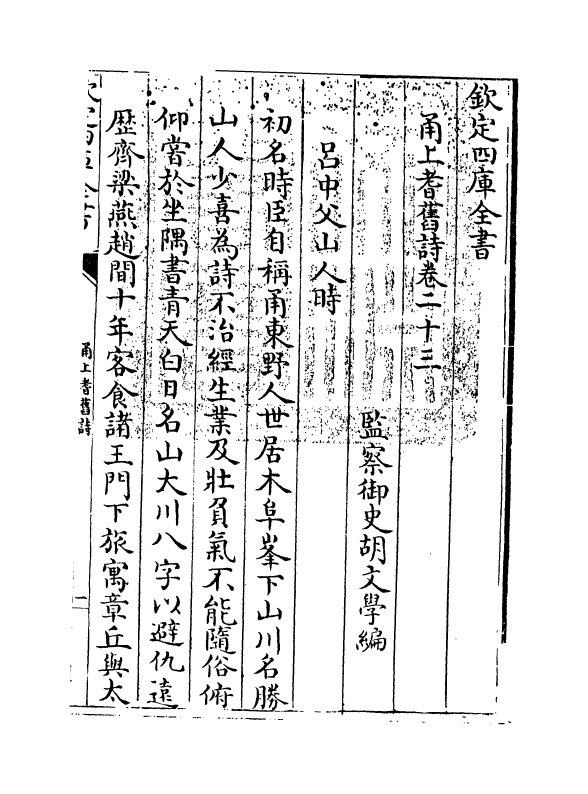 欽定四庫全書
甬上耆舊詩卷二十三
監察御史胡文學編
呂中父山人時
初名時臣自稱甬東野人世居木阜峯下山川名勝
山人少喜為詩不治經生業及壯負氣不能隨俗俯
仰嘗於坐隅書青天白日名山大川八字以避仇遠
歷齊梁燕趙間十年客食諸王門下旅寓章丘與太
甬上耆舊詩
一